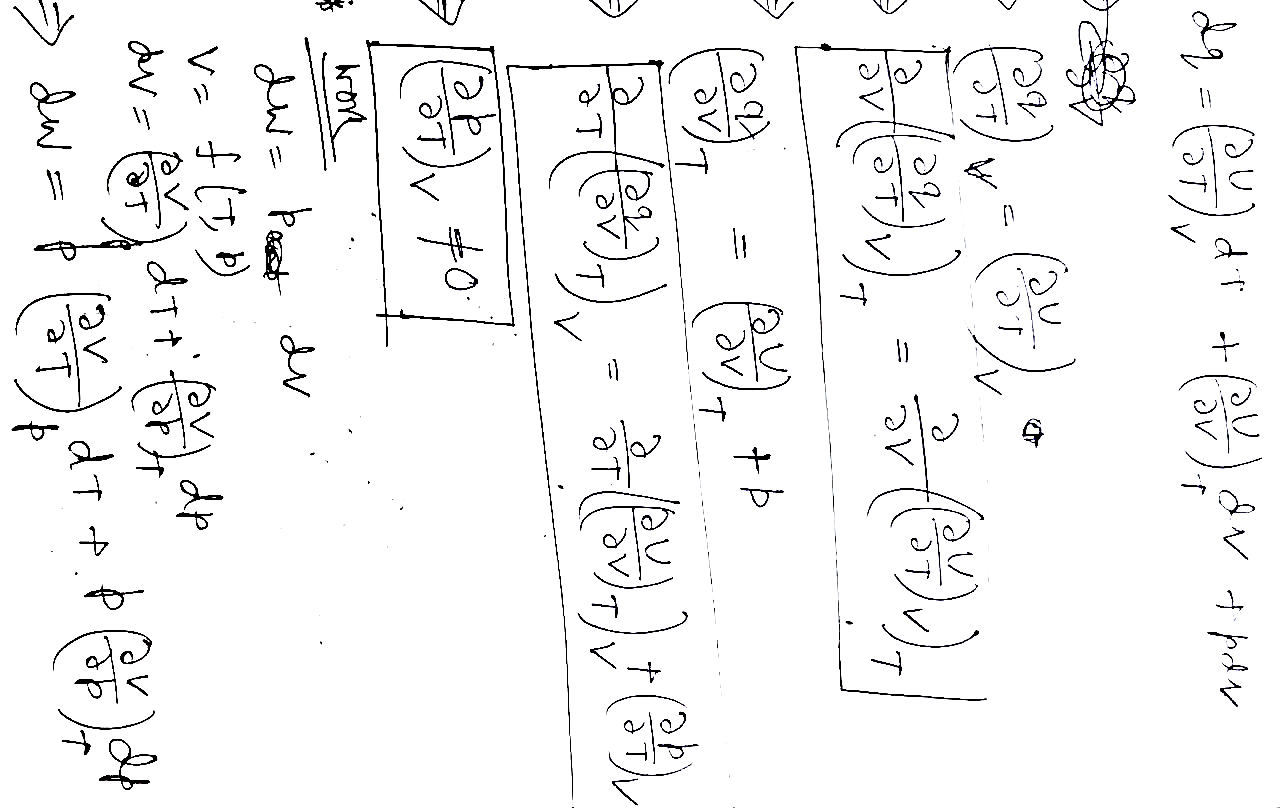 dq = (∂U/∂T)_V dT + (∂U/∂V)_T dv + pdv
⇒ (∂q/∂T)_V = (∂U/∂T)_V
⇒ ∂/∂V ((∂q/∂T)_V)_T = ∂/∂V ((∂U/∂T)_V)_T
⇒ (∂q/∂V)_T = (∂U/∂V)_T + p
⇒ ∂/∂T ((∂q/∂V)_T)_V = ∂/∂T ((∂U/∂V)_T)_V + (∂p/∂T)_V
⇒ (∂p/∂T)_V ≠ 0
* Now
dw = p dv
V = f(T, p)
dv = (∂V/∂T)_p dT + (∂V/∂p)_T dp
⇒ dw = p (∂V/∂T)_p dT + p (∂V/∂p)_T dp